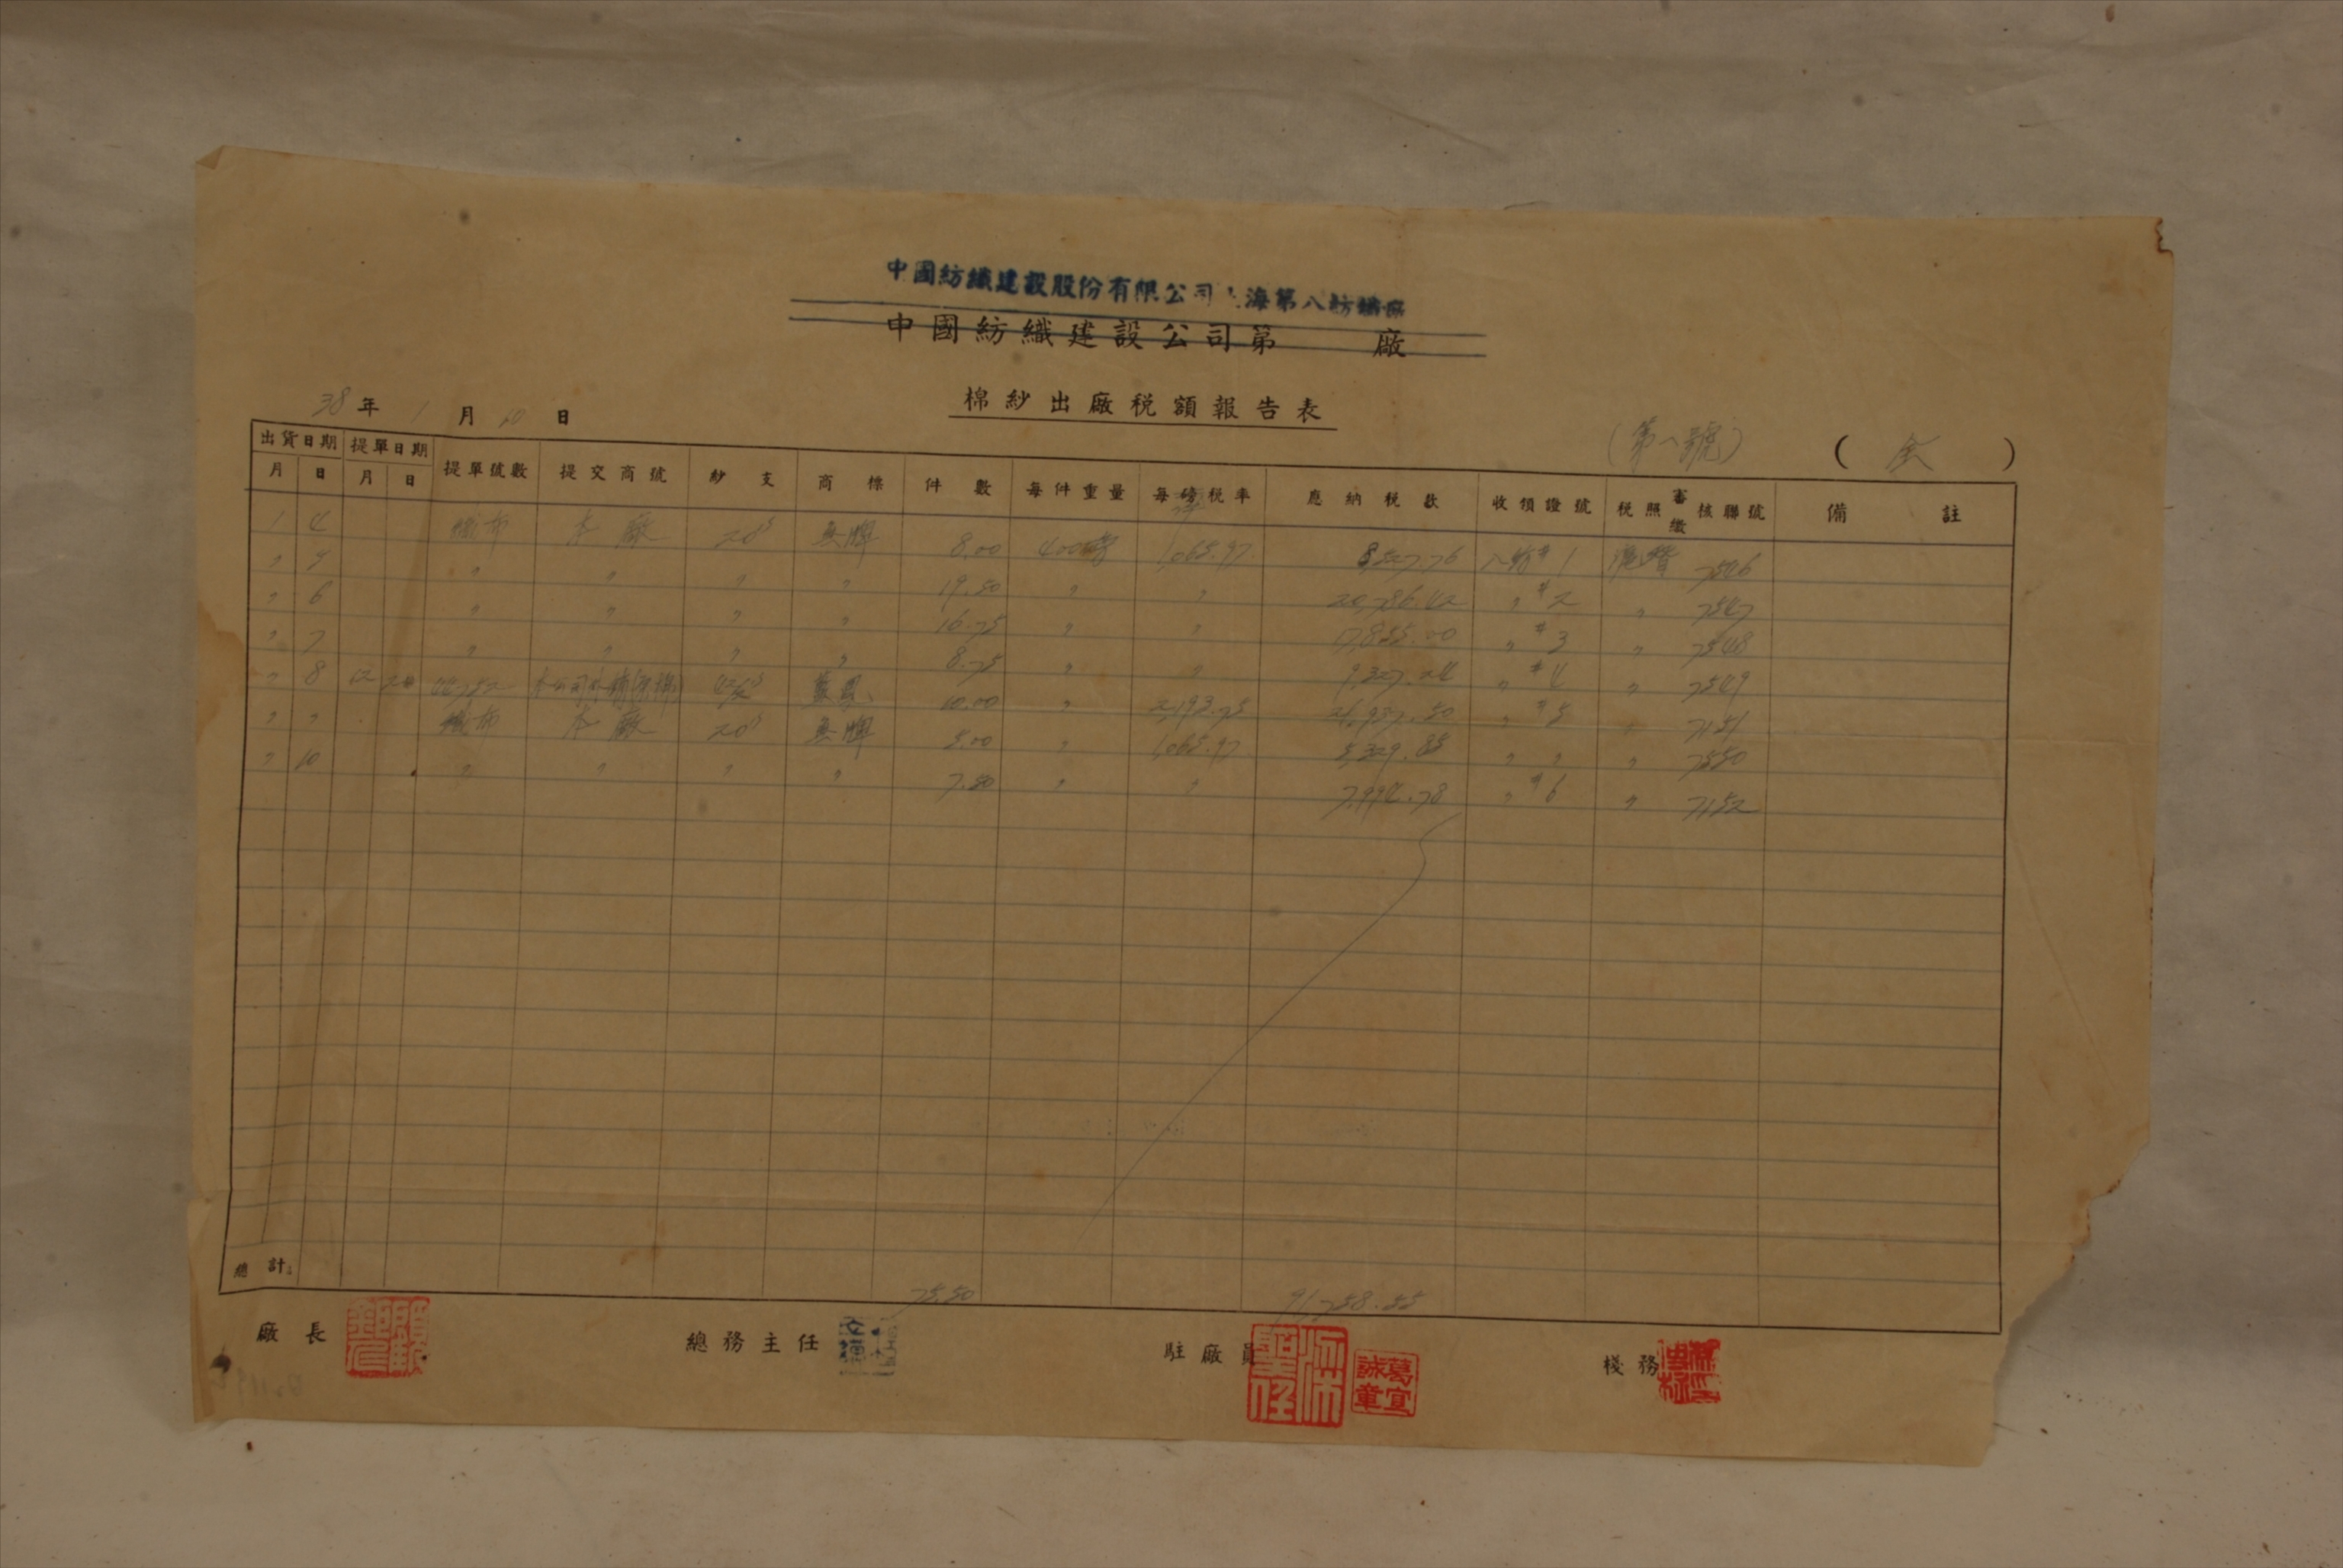 中國紡織建設股份有限公司上海第八紡織廠
中國紡織建設公司第 廠
棉紗出廠稅額報告表
38年 1月 10日
(第 號) ( 全 )
出貨日期 提單日期 提單號數 提交商號 紗支 商標 件數 每件重量 每磅稅率 應納稅款 收領證號 稅照審繳核聯號 備註
月 日 月 日
1 4 織布 本廠 20s 無牌 8.00 400磅 1,065.97 8,527.76 八紡#1 滬 7546
〃 5 〃 〃 〃 〃 19.50 〃 〃 20,786.42 〃 #2 〃 7547
〃 6 〃 〃 〃 〃 16.75 〃 〃 17,855.00 〃 #3 〃 7548
〃 7 〃 〃 〃 〃 8.75 〃 〃 9,327.24 〃 #4 〃 7549
〃 8 12 本公司 10.00 〃 2,193.75 21,937.50 〃 #5 〃 7151
〃 〃 織布 本廠 20s 無牌 5.00 〃 1,065.97 5,329.85 〃 〃 〃 7550
〃 10 〃 〃 〃 〃 7.50 〃 〃 7,994.78 〃 #6 〃 7152
總計 75.50 91,758.55
廠長 總務主任 駐廠員 葛宣誠章 棧務